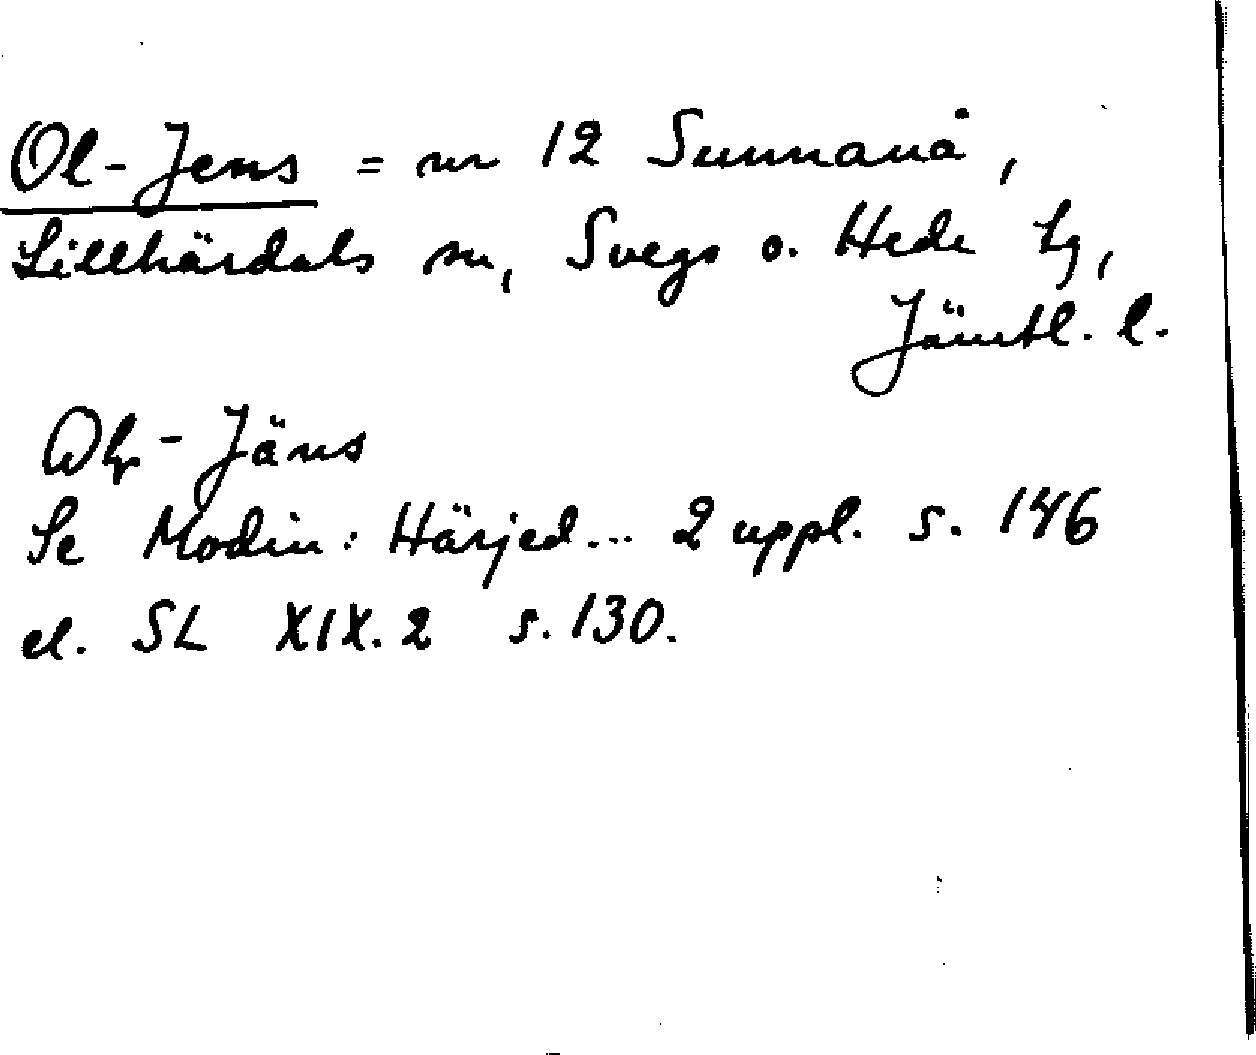 Ol-Jens = nr 12 Sunnanå,
Lillhärdals sn, Svegs o. Hede tg,
Jämtl. l.
Jäns
Se Modin: Härjed... 2 uppl. s. 146
el. SL XIX.2 s. 130.